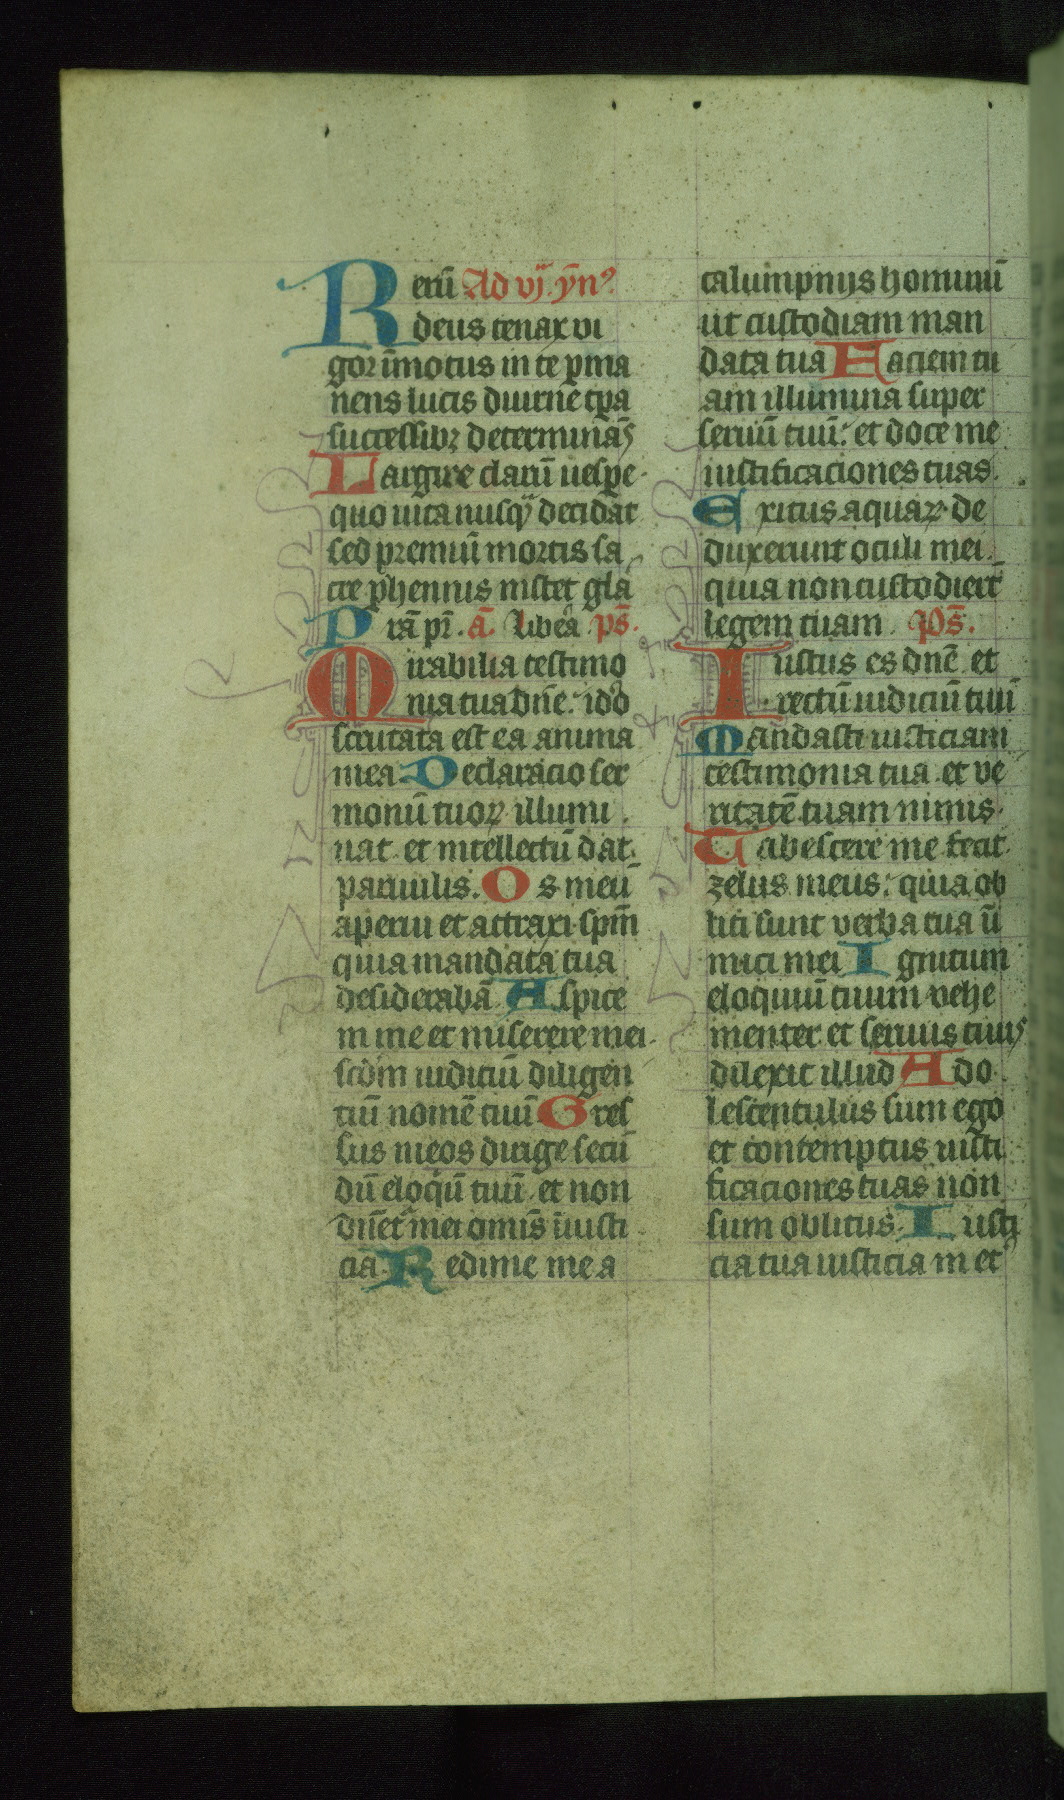 Rerū Ad vj. ȳn⁹
deus tenax vi
gor īmotus in te ꝑma
nens lucis diurne tꝑa
successibꝫ determinās
Largire clarū uespe
quo uita nusqᷓ decidat
sed premiū mortis sa
cre ꝑhennis īnstet glā
Prā pr̄. ā. Libea ps̄.
Mirabilia testimo
nia tua dn̄e. ido
scrutata est ea anima
mea Declaracio ser
monū tuoꝝ illumi
nat et intellectū dat
paruulis. Os meū
aperui et attraxi spm̄
quia mandata tua
desiderabā Aspice
in me et miserere mei
scdm̄ iudiciū diligen
tiū nomē tuū Gres
sus meos dirige secū
dū eloqͥū tuū et non
dn̄et᷑ mei omīs īiusti
cia Redime me a
calumpnijs hominū
ut custodiam man
data tua Faciem tu
am illumina super
seruū tuū et doce me
iustificaciones tuas.
Exitus aquaꝝ de
duxerunt oculi mei.
quia non custodierт̄
legem tuam. Ps̄.
Iustus es dn̄e et
rectū iudiciū tuū
Mandasti iusticiam
testimonia tua et ve
ritatē tuam nimis.
Tabescere me fecit
zelus meus. quia ob
liti sunt verba tua ī
mici mei Ignitum
eloquiū tuum vehe
menter et seruus tuus
dilexit illud Ado
lescentulus sum ego
et contemptus iusti
ficaciones tuas non
sum oblitus. Iusti
cia tua iusticia in et